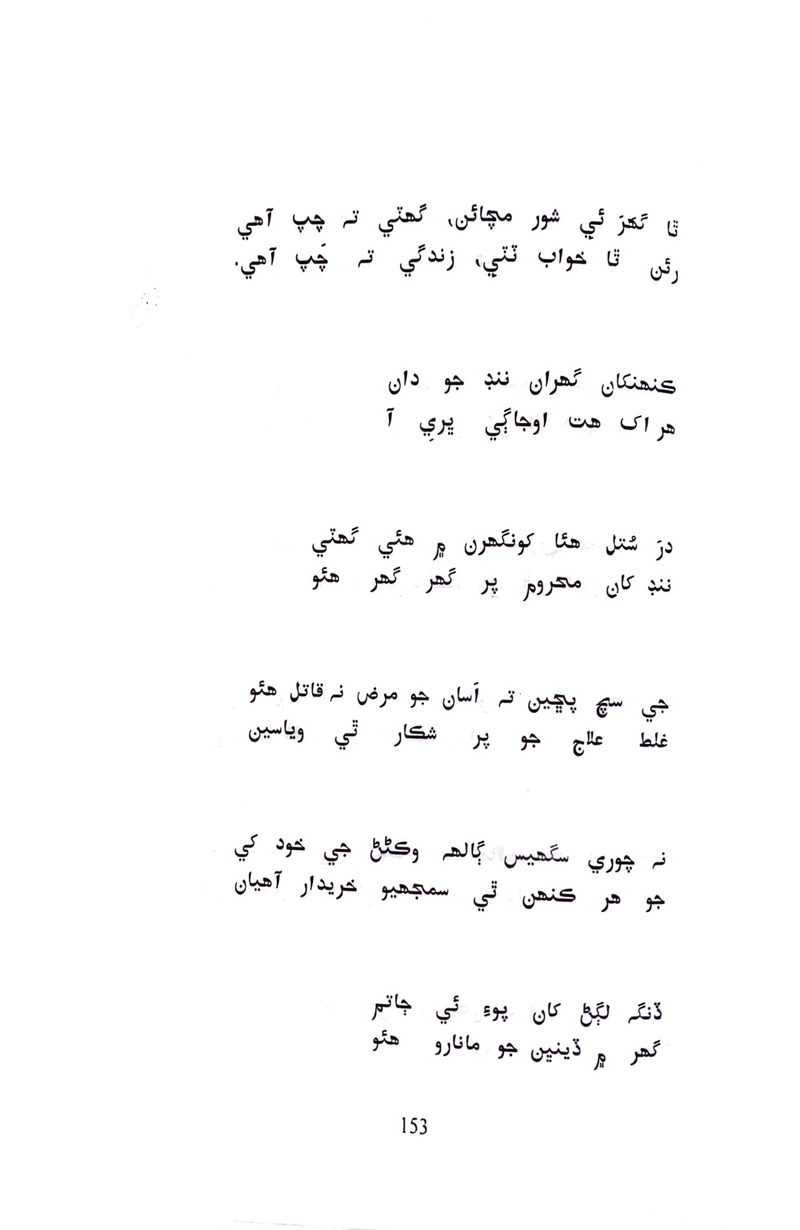 ٿا گهَرَ ئي شور مچائن، گهٽي تہ چپ آهي
رئن ٿا خواب ٽٽي، زندگي تہ چَپ آهي.
ڪنهنکان گهران ننڊ جو دان
هر اک هت اوجاڳي ڀري آ
درَ سُتل هئا کونگهرن ۾ هئي گهٽي
ننڊ کان محروم پر گهر گهر هئو
جي سچ پڇين تہ اَسان جو مرض نہ قاتل هئو
غلط علاج جو پر شڪار ٿي وياسين
نہ چوري سگهيس ڳالهہ وڪڻڻ جي خود کي
جو هر ڪنهن ٿي سمجهيو خريدار آهيان
ڏنگہ لڳڻ کان پوءِ ئي ڄاتم
گهر ۾ ڏينڀن جو مانارو هئو
153